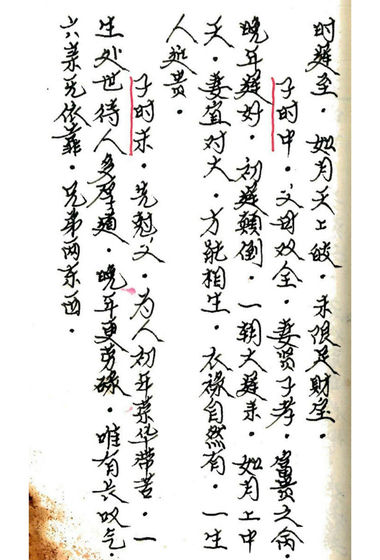 时运至。如月天上皎。末限足财宝。
子时中。父母双全。妻贤子孝。富贵之命
晚年运好。初运颠倒。一朝大运来。如月上中
天。妻宜对大。方能相生。衣禄自然有。一生
人延贵。
子时末。先克父。为人初年荣华带苦。一
生处世待人多厚道。晚年更劳碌。唯有长叹气。
六亲无依靠。兄弟两东西。